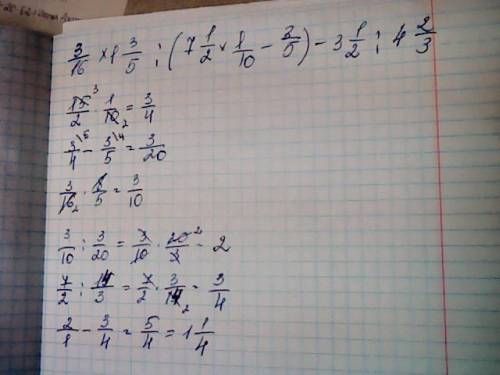 3/16 × 1 3/5 : (7 1/2 × 1/10 − 3/5) − 3 1/2 : 4 2/3
15³/2 · 1/10₂ = 3/4
3/4\⁵ − 3/5\⁴ = 3/20
3/16₂ · 8/5 = 3/10
3/10 : 3/20 = 3/10 · 20²/3 = 2
7/2 : 14/3 = 7/2 · 3/14₂ = 3/4
2/1 − 3/4 = 5/4 = 1 1/4